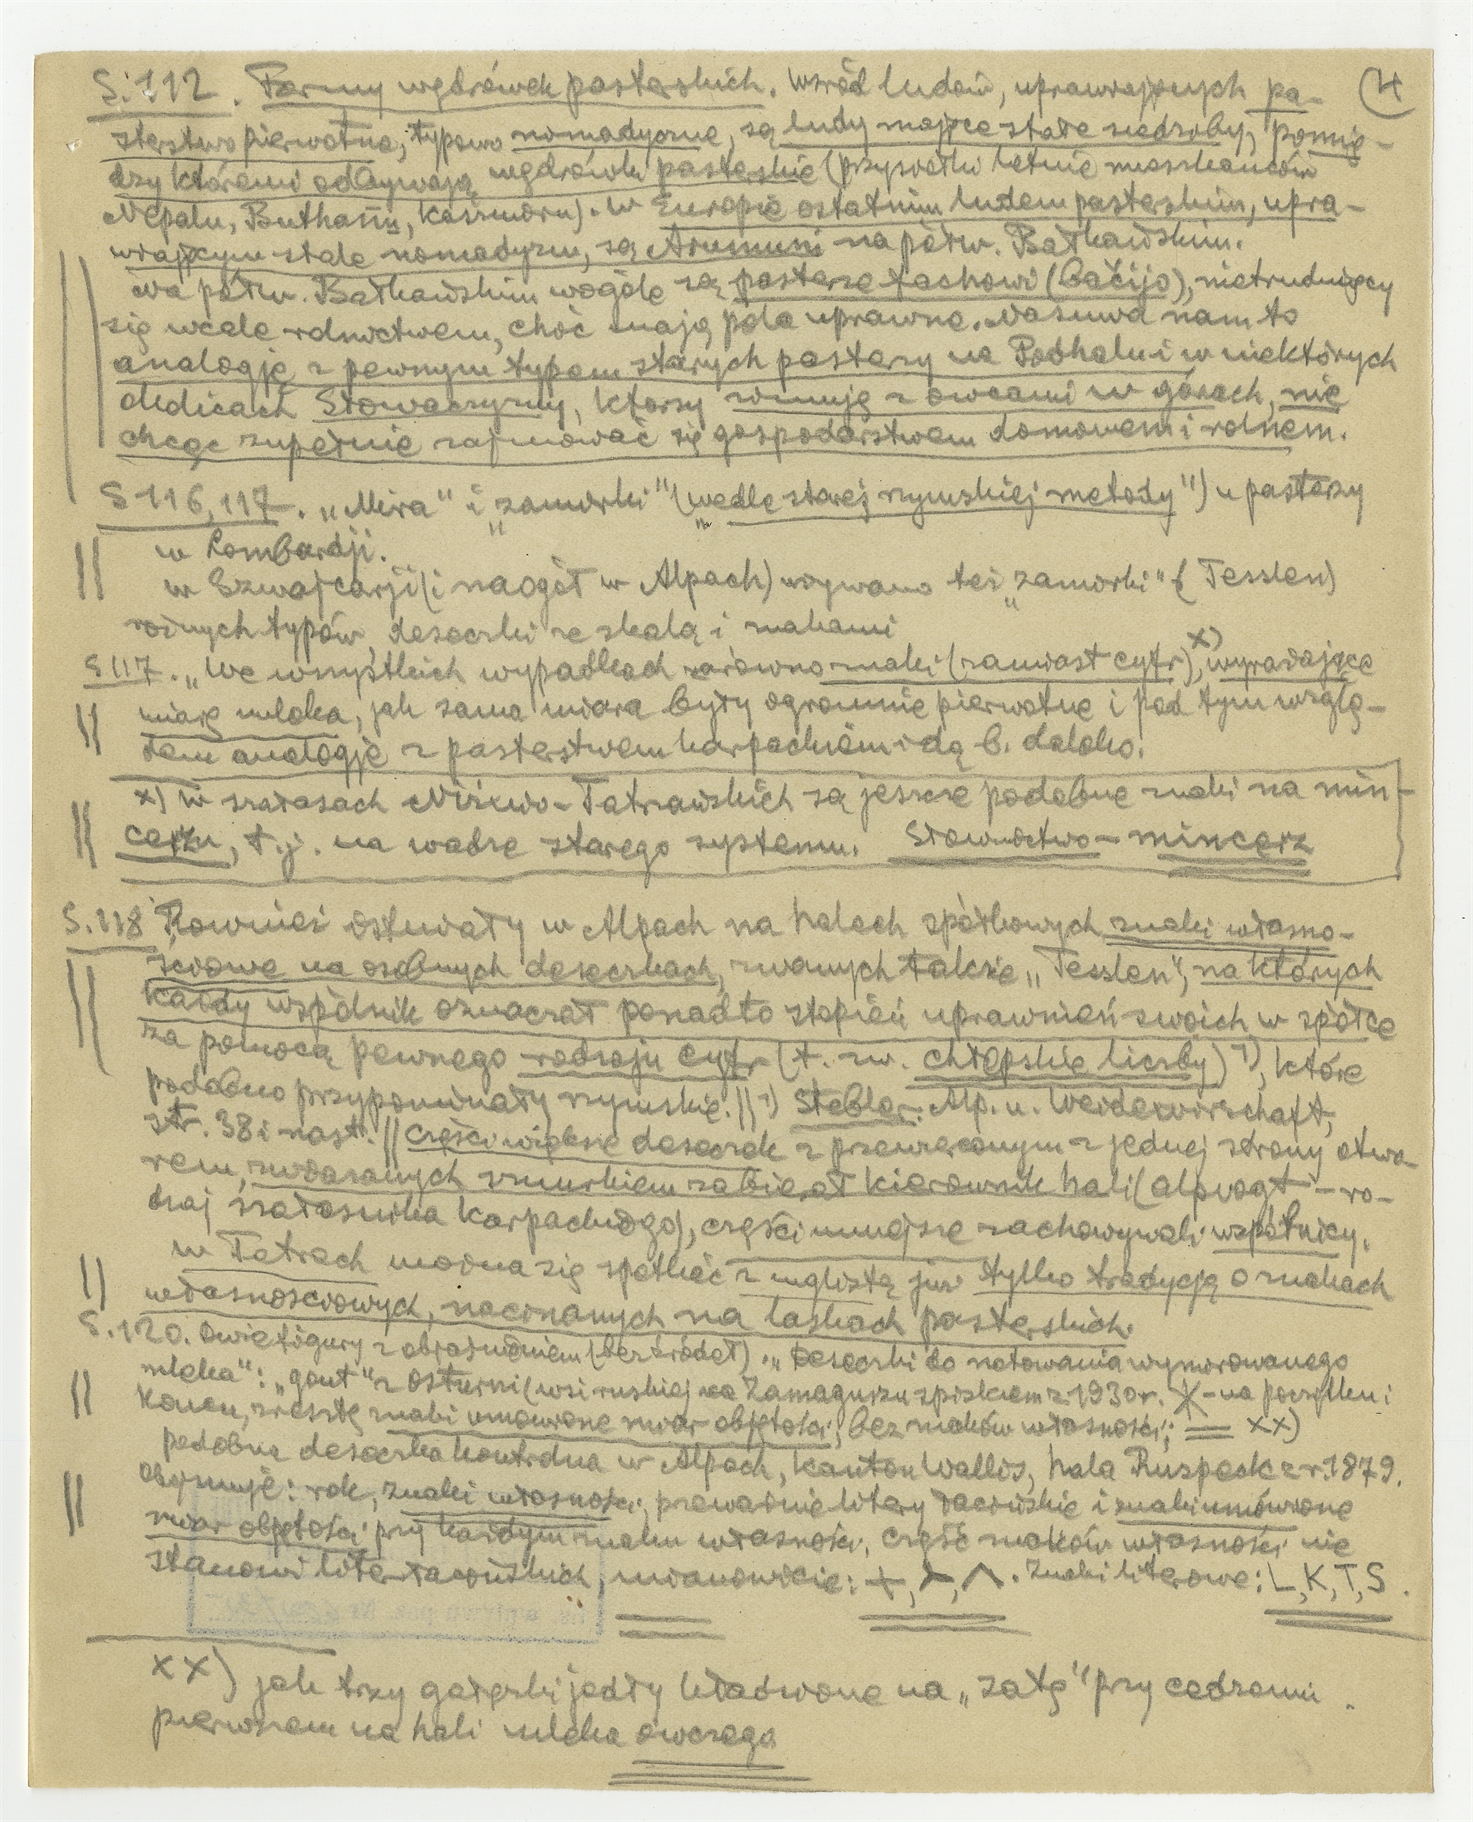 S. 112. Formy wędrówek pasterskich. Wśród ludów, uprawiających pa- 4
sterstwo pierwotne, typowo nomadyczne, są ludy mające stałe siedziby, pomię-
dzy któremi odbywają wędrówki pasterskie (przysiółki letnie mieszkańców
Nepalu, Buthanu, Kaszmiru). W Europie ostatnim ludem pasterskim, upra-
wiającym stale nomadyzm, są Arumuni na półw. Bałkańskim.
Na półw. Bałkańskim wogóle są pasterze fachowi (bačijo), nietrudniący
się wcale rolnictwem, choć mają pola uprawne. Nasuwa nam to
analogję z pewnym typem starych pasterzy na Podhalu i w niektórych
okolicach Słowaczyzny, którzy zimują z owcami w górach, nie
chcąc zupełnie zajmować się gospodarstwem domowem i rolnem.
S 116, 117. „Mira" i „zamirki" („wedle starej rzymskiej metody") u pasterzy
w Lombardji.
w Szwajcarji (i naogół w Alpach) używano też „zamirki" (Tesslen)
różnych typów, deseczki ze skalą i znakami
S 117. „We wszystkich wypadkach zarówno znaki (zamiast cyfr) x), wyrażające
miarę mleka, jak sama miara były ogromnie pierwotne i pod tym wzglę-
dem analogje z pasterstwem karpackiem idą b. daleko.
x) W szałasach Niżnio-Tatrzańskich są jeszcze podobne znaki na min-
cerzu, t.j. na wadze starego systemu. Słownictwo – mincerz
S. 118 Również istniały w Alpach na halach spółkowych znaki własno-
ściowe na osobnych deseczkach, zwanych także „Tesslen", na których
każdy wspólnik oznaczał ponadto stopień uprawnień swoich w spółce
za pomocą pewnego rodzaju cyfr (t. zw. chłopskie liczby) 1), które
podobno przypominały rzymskie. || 1) Stebler: Alp. u. Weidewirschaft,
str. 38 i nast. || Części większe deseczek z przewierconym z jednej strony otwo-
rem, związanych sznurkiem zabierał kierownik hali (alpvogt – ro-
dzaj szałaśnika karpackiego), części mniejsze zachowywali wspólnicy.
W Tatrach można się spotkać z mglistą już tylko tradycją o znakach
własnościowych, nacinanych na laskach pasterskich.
S. 120. Dwie figury z objaśnieniem (bez źródeł). „Deseczki do notowania wymirowanego
mleka": „gont" z Osturni (wsi ruskiej na Zamagurzu spiskiem z 1930 r. X – na początku i
końcu, zresztą znaki umówione miar objętości, bez znaków własności; = xx)
podobna deseczka kontrolna w Alpach, kanton Wallis, hala Ruspeck z r. 1879.
Obejmuje: rok, znaki własności, przeważnie litery łacińskie i znaki umówione
miar objętości przy każdym znaku własności. Część znaków własności nie
stanowi liter łacińskich, mianowicie: +, ⅄, Λ. Znaki literowe: L, K, T, S.
xx) jak trzy gałązki jodły kładzione na „satę" przy cedzeniu
pierwszem na hali mleka owczego